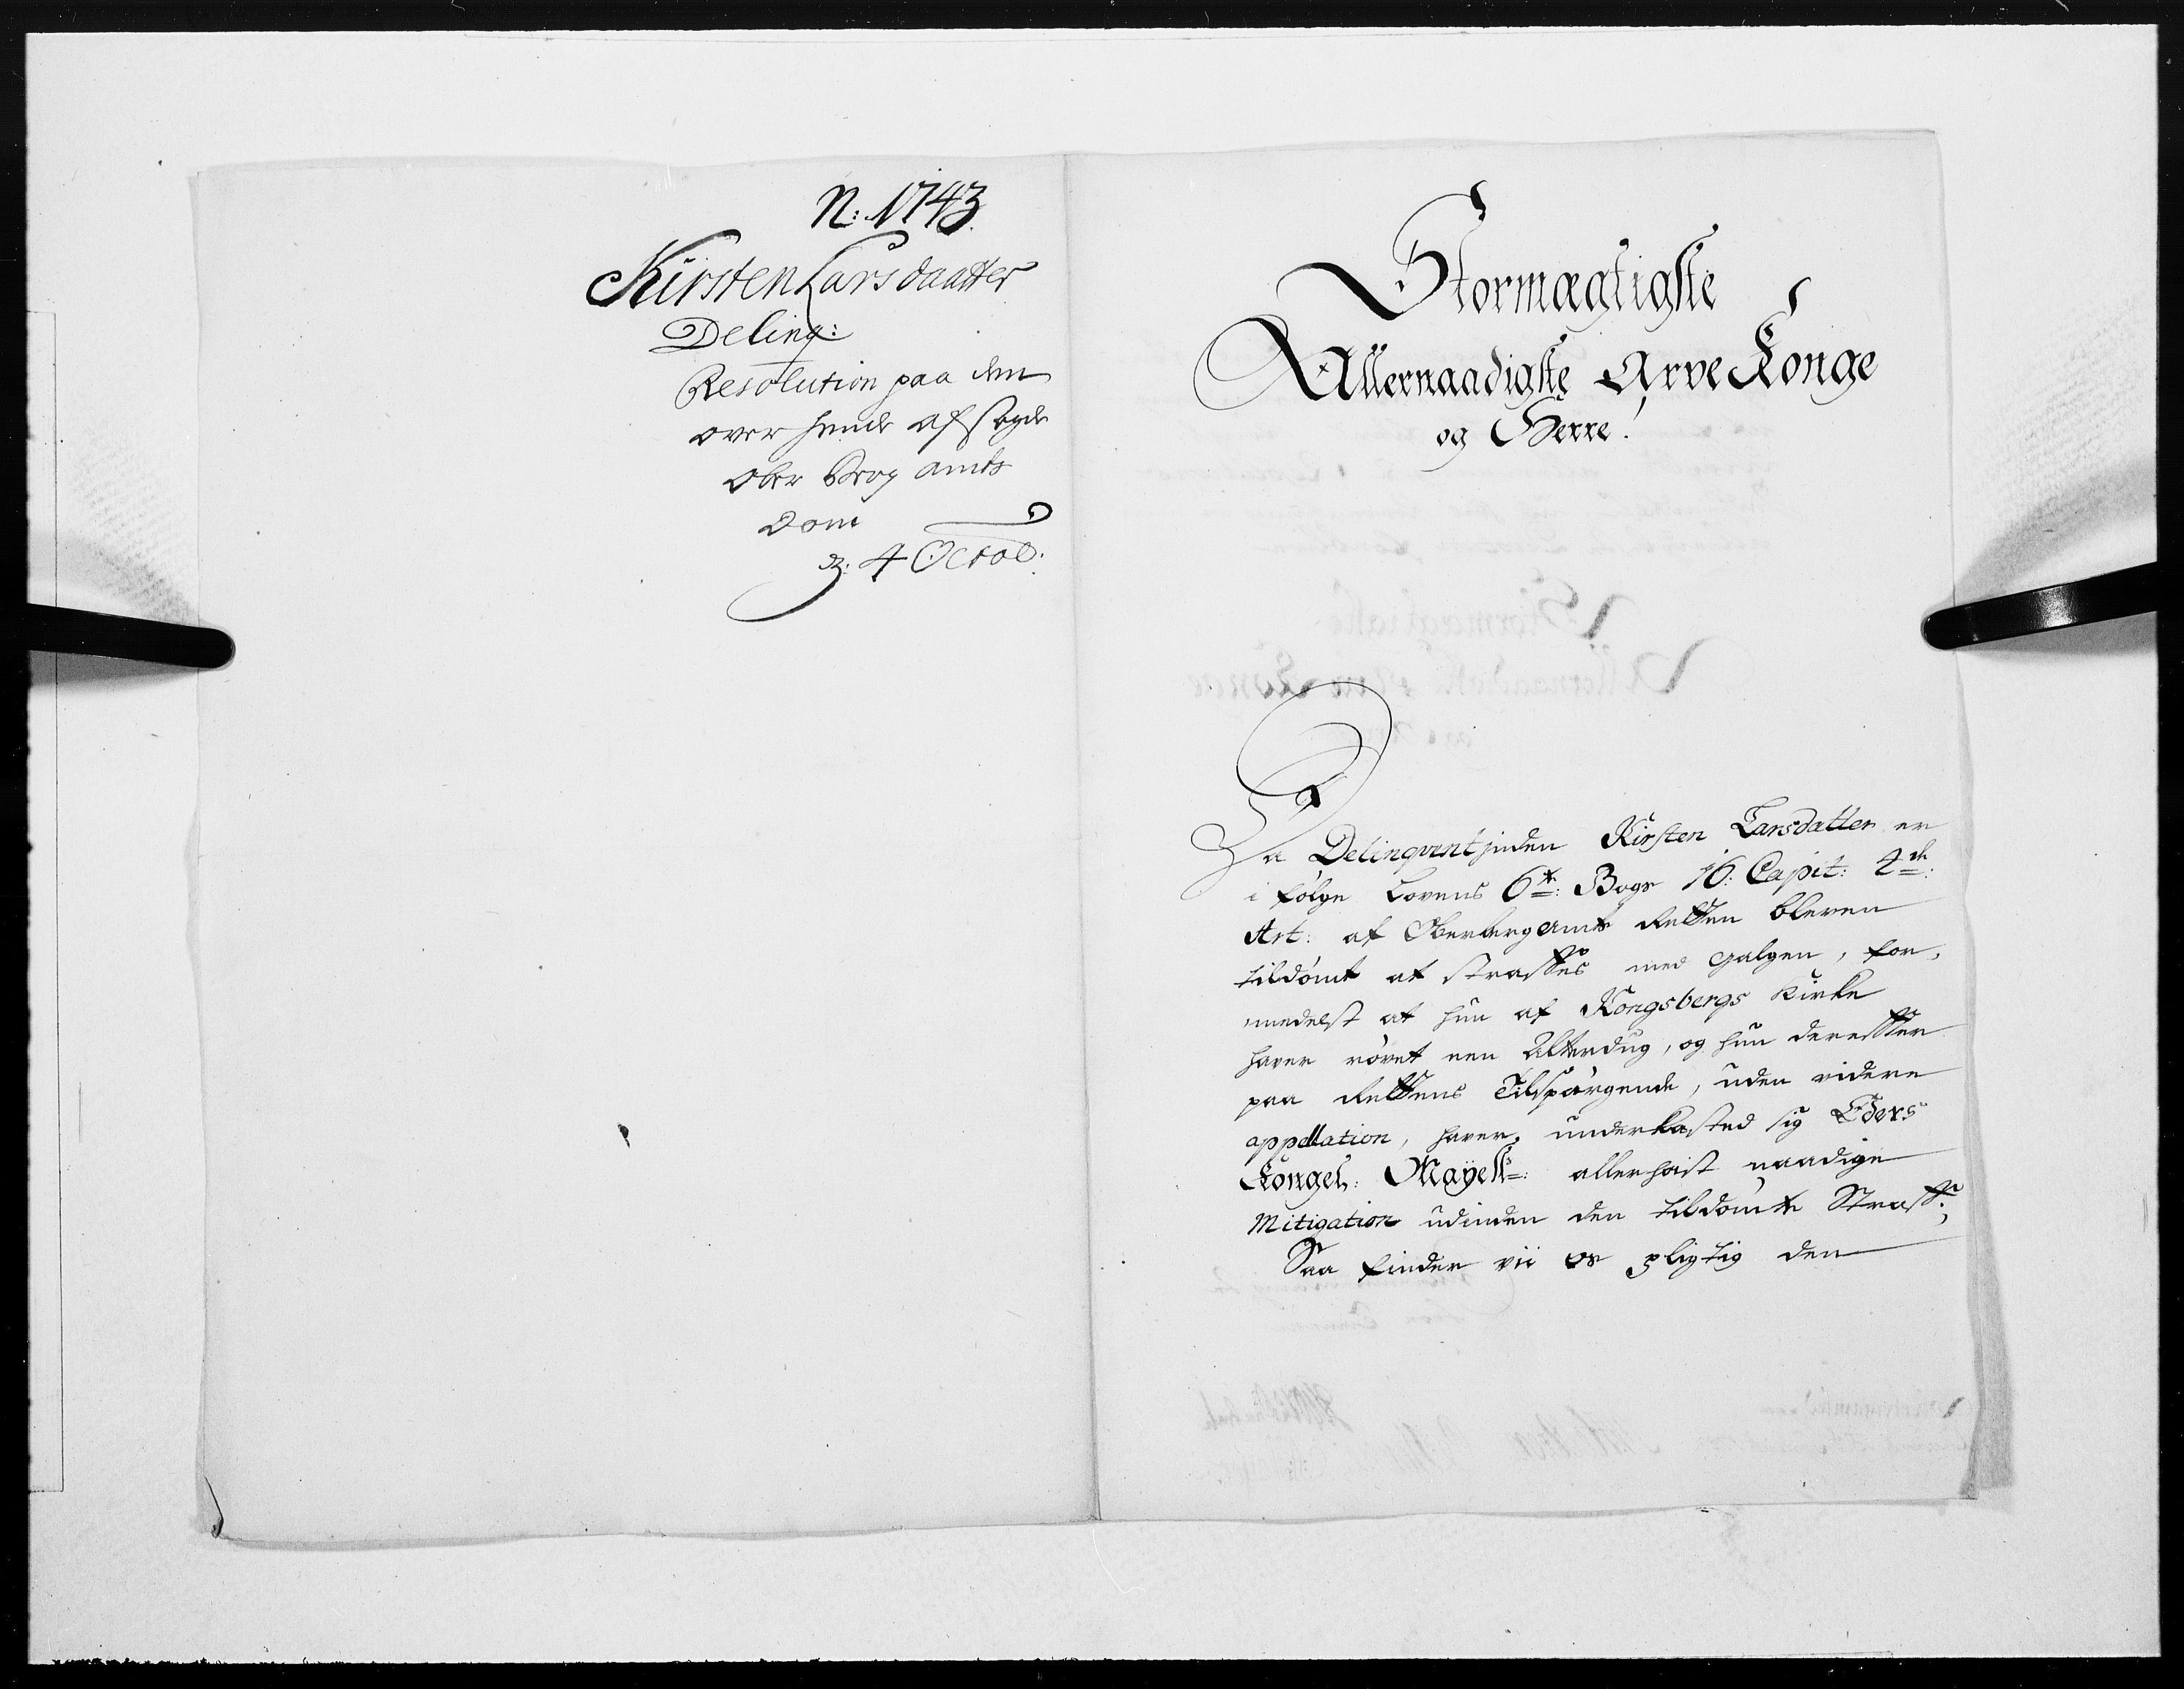 N: 1743
Kirsten Larsdaatter
Delinq:
Resolution paa den
over hende afsagde
Ober Berg amts
Dom
d: 4 Octob:
Stormægtigste
Allernaadigste Arve Konge
og Herre!
Da Delinqventinden Kirsten Larsdatter er
i følge Lovens 6te: Bogs 16: Capit: 4de:
Art: af Oberbergamts Retten bleven
tildømt at straffes med Galgen, for,
medelst at hun af Kongsbergs Kirke
haver røvet een Alterdug, og hun derefter
paa Rettens Tilspørgende, uden videre
appellation, haver underkasted sig Eders
Kongel: Mayest:s allerhøist naadige
Mitigation udinden den tildømte Straff;
Saa finder vii os pligtig den